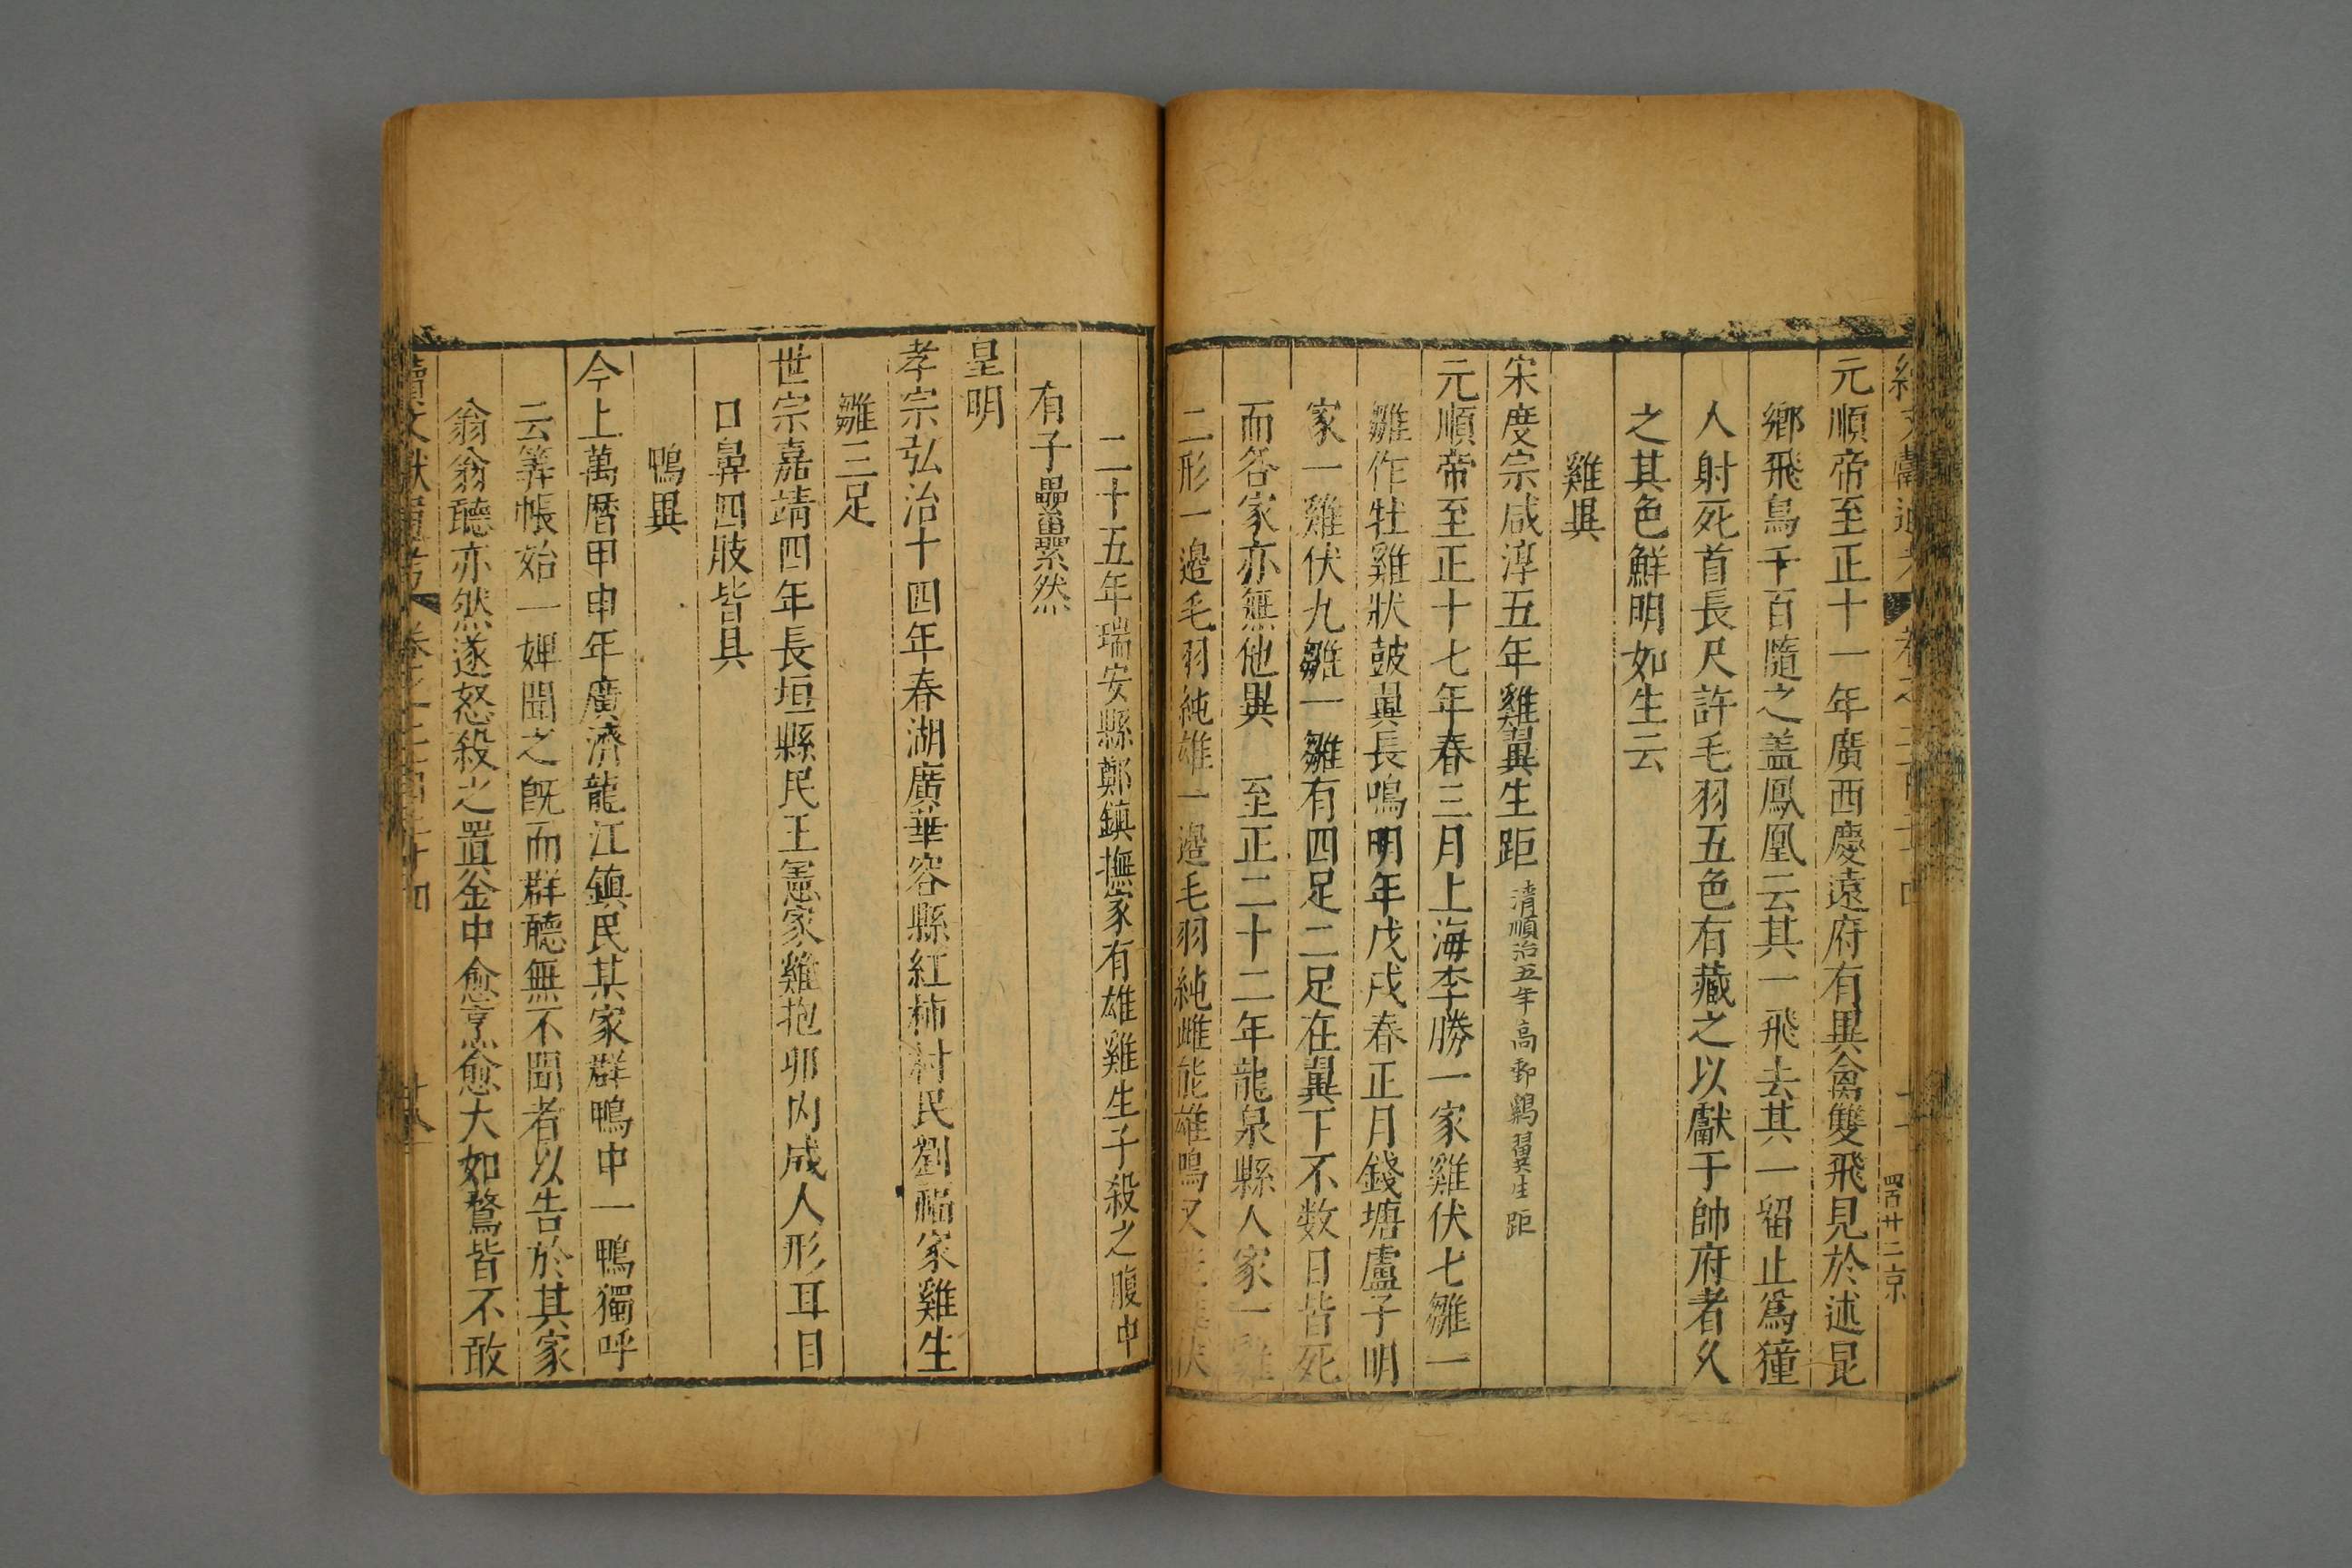 續文獻通考 卷之二百二十四
四百廿二 京
元順帝至正十一年廣西慶遠府有異禽雙飛見於述昆
鄉飛鳥千百隨之盖鳳凰云其一飛去其一留止爲獞
人射死首長尺許毛羽五色有藏之以獻于帥府者久
之其色鮮明如生云
雞異
宋度宗咸淳五年雞翼生距 清順治五年高郵鷄翼生距
元順帝至正十七年春三月上海李勝一家雞伏七雛一
雛作牡雞狀鼓翼長鳴明年戊戌春正月錢塘盧子明
家一雞伏九雛一雛有四足二足在翼下不数日皆死
而各家亦無他異 至正二十二年龍泉縣人家一雞
二形一邉毛羽純雄一邉毛羽純雌能雄鳴又
二十五年瑞安縣鄭鎮撫家有雄雞生子殺之腹中
有子纍纍然
皇明
孝宗弘治十四年春湖廣華容縣紅柿村民劉福家雞生
雛三足
世宗嘉靖四年長垣縣民王憲家雞抱卵内成人形耳目
口鼻四肢皆具
鴨異
今上萬曆甲申年廣濟龍江鎮民某家群鴨中一鴨獨呼
云筭帳始一婢聞之旣而群聽無不聞者以告於其家
翁翁聽亦然遂怒殺之置釜中愈烹愈大如鶩皆不敢
續文獻通考 卷之二百二十四